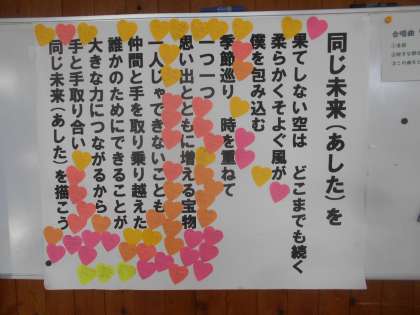 同じ未来（あした）を
果てしない空は　どこまでも続く
柔らかくそよぐ風が
僕を包み込む
季節巡り　時を重ねて
一つ一つ
思い出とともに増える宝物
一人じゃできないことも
仲間と手を取り乗り越えた
誰かのためにできることが
大きな力につながるから
手と手取り合い
同じ未来（あした）を描こう
合唱曲